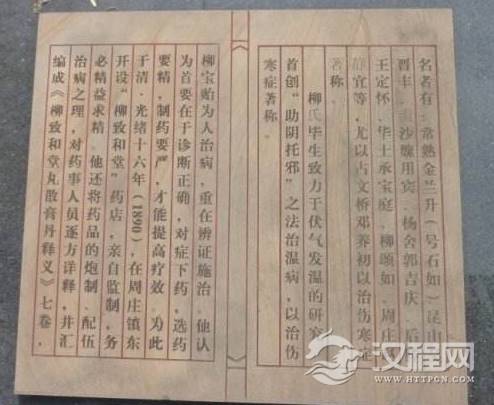 名者有:常熟金兰升(号石如)昆山
晋丰、沙用宾、杨舍郭吉庆、后
王定怀、毕士承宝庭、柳颂如、周庄
静宜等,尤以古文桥邓养初以治伤寒症
著称.
柳氏毕生致力于伏气发温的研究
首创“助阴托邪”之法治温病,以治伤
寒症著称.
柳宝贻为人治病,重在辨证施治.他认
为首要在于诊断正确,对症下药,选药
要精,制药要严,才能提高疗效.为此
于清·光绪十六年(1890),在周庄镇东
开设“柳致和堂”药店,亲自监制,务
必精益求精.他还将药品的炮制、配伍
治病之理,对药事人员逐方详释,并汇
编成《柳致和堂丸散膏丹释义》七卷,
汉程网
WWW.HTTPCN.COM